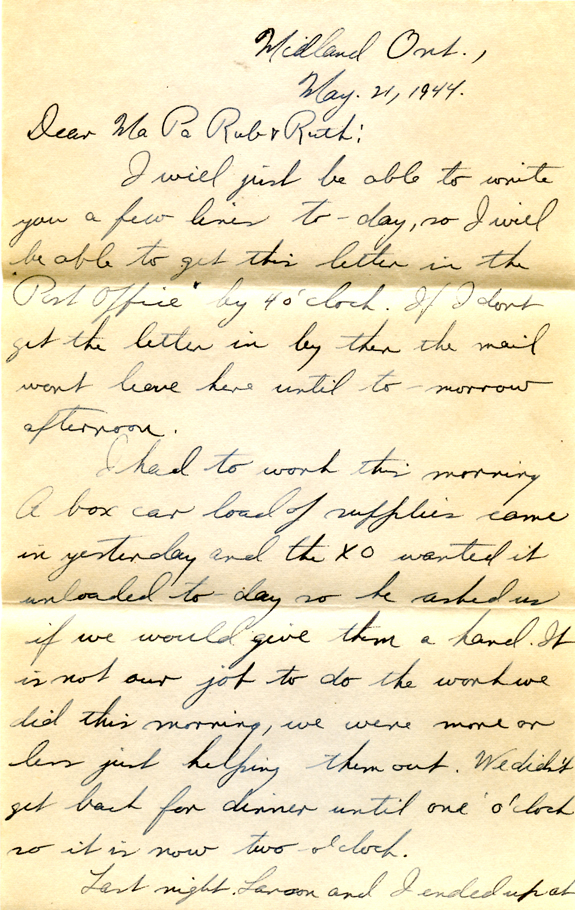 Midland Ont.,
May. 21, 1944.
Dear Ma Pa Rub & Ruth:
I will just be able to write
you a few lines to-day, so I will
be able to get this letter in the
"Post Office" by 4 o'clock. If I dont
get the letter in by then the mail
wont leave here until to-morrow
afternoon.
I had to work this morning
A box car load of supplies came
in yesterday and the XO wanted it
unloaded to-day so he asked us
if we would give them a hand. It
is not our job to do the work we
did this morning, we were more or
less just helping them out. We didn't
get back for dinner until one o'clock
so it is now two o'clock.
Last night Larson and I ended up at